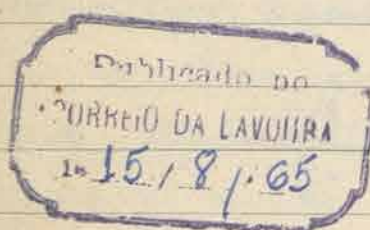 Publicado no
CORREIO DA LAVOURA
15 / 8 / 65